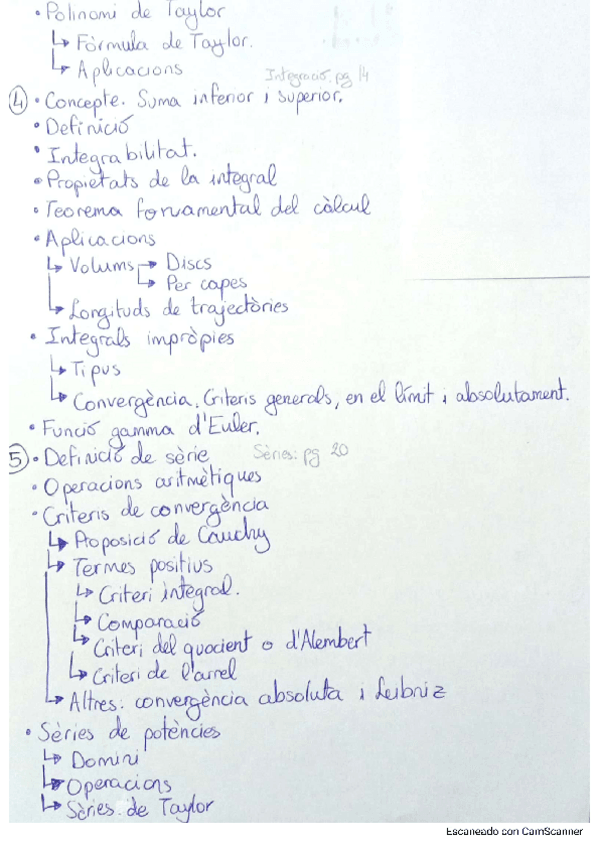 • Polinomi de Taylor
↳ Fórmula de Taylor.
↳ Aplicacions
Integració. pg 14
④ • Concepte. Suma inferior i superior.
• Definició
• Integrabilitat.
• Propietats de la integral
• Teorema fonamental del càlcul
• Aplicacions
↳ Volums → Discs
↳ Per capes
↳ Longituds de trajectòries
• Integrals impròpies
↳ Tipus
↳ Convergència. Criteris generals, en el límit i absolutament.
• Funció gamma d'Euler.
⑤ • Definició de sèrie Sèries: pg 20
• Operacions aritmètiques
• Criteris de convergència
↳ Proposició de Cauchy
↳ Termes positius
↳ Criteri integral.
↳ Comparació
↳ Criteri del quocient o d'Alembert
↳ Criteri de l'arrel
↳ Altres: convergència absoluta i Leibniz
• Sèries de potències
↳ Domini
↳ Operacions
↳ Sèries de Taylor
Escaneado con CamScanner